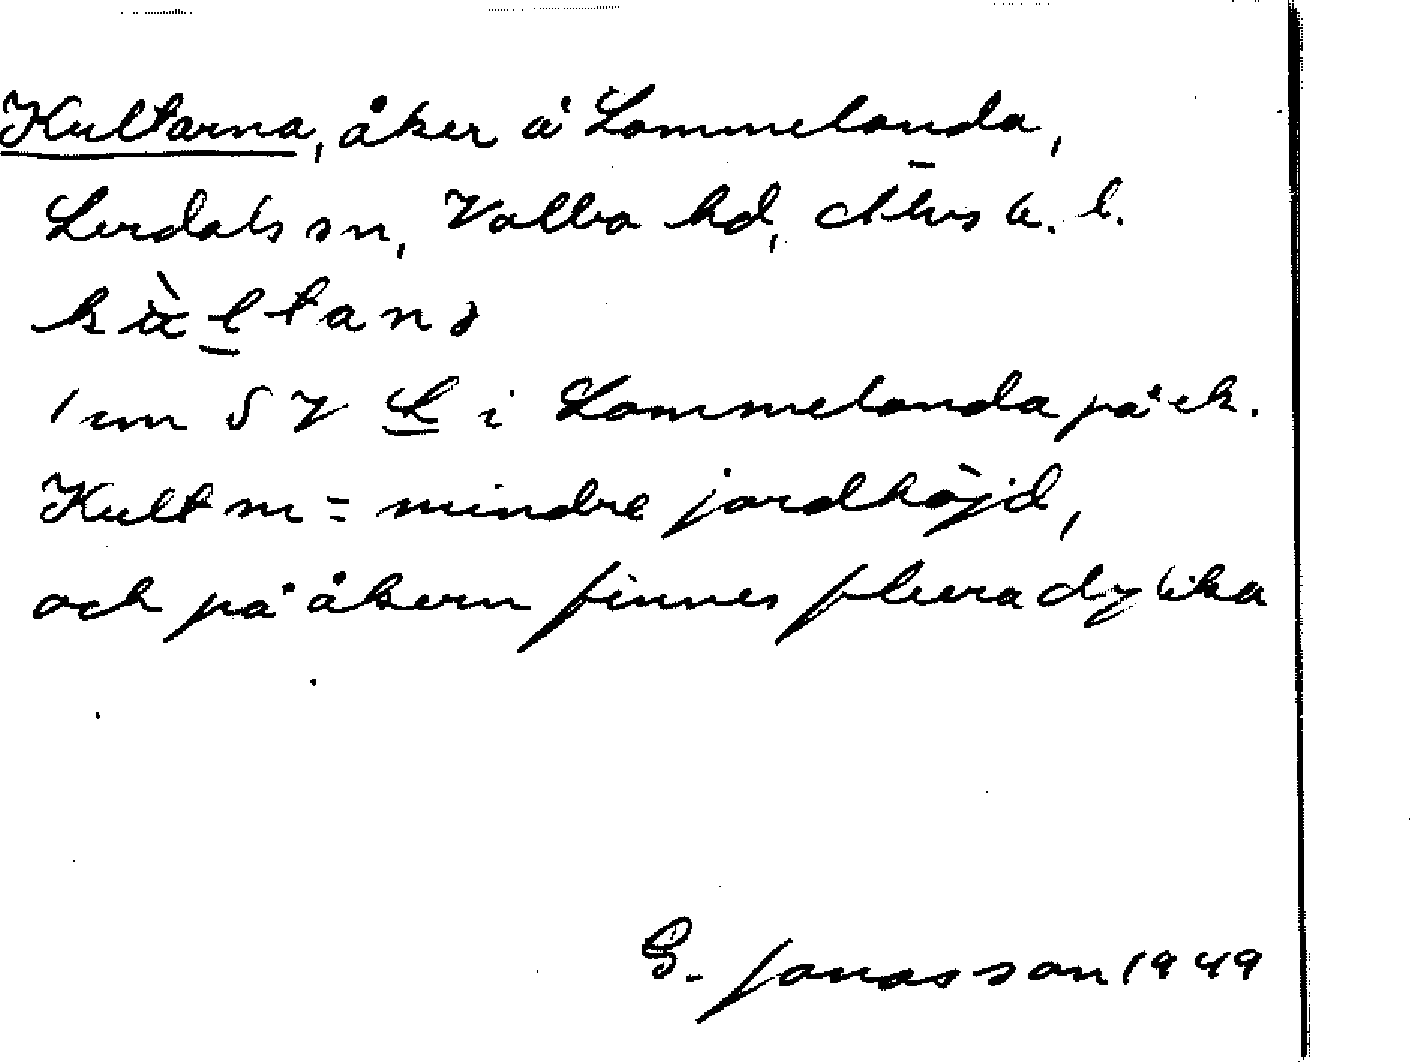 Kultarna, åker å Lommelanda,
Lerdals sn, Valbo hd, Älvs b. l.
1 mm SV L i Lommelanda på ek.
Kult m = mindre jordhöjd,
och på åkern finnes flera dylika
G. Jonasson 1949